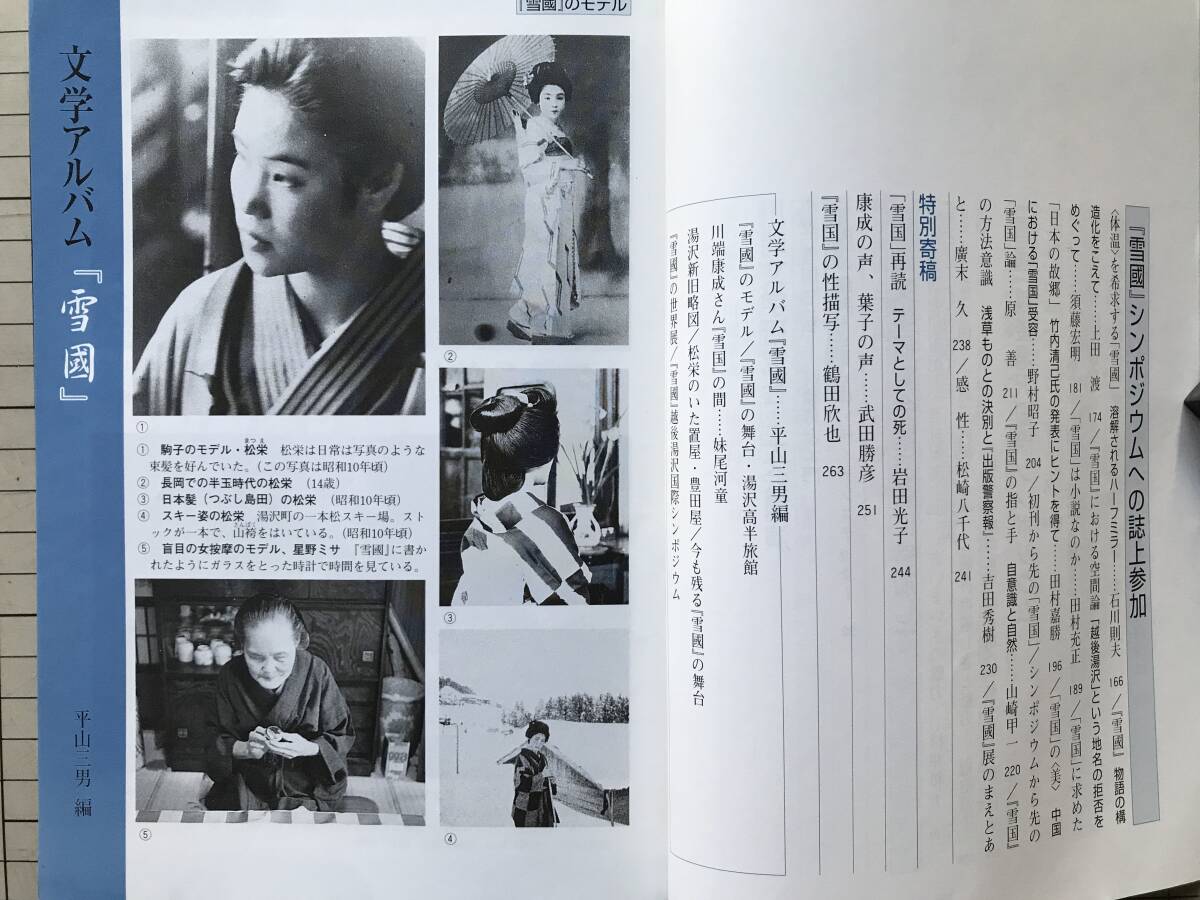 『雪國』のモデル
文学アルバム『雪國』
平山三男 編
①
②
③
④
⑤
① 駒子のモデル・松栄 松栄は日常は写真のような
まつえ
束髪を好んでいた。(この写真は昭和10年頃)
② 長岡での半玉時代の松栄 (14歳)
③ 日本髪(つぶし島田)の松栄 (昭和10年頃)
④ スキー姿の松栄 湯沢町の一本松スキー場。スト
ックが一本で、山袴をはいている。(昭和10年頃)
さんぱく
⑤ 盲目の女按摩のモデル、星野ミサ 『雪國』に書か
れたようにガラスをとった時計で時間を見ている。
『雪國』シンポジウムへの誌上参加
〈体温〉を希求する「雪國」 溶解されるハーフミラー……石川則夫 166/『雪國』 物語の構
造化をこえて……上田 渡 174/『雪國』における空間論「越後湯沢」という地名の拒否を
めぐって……須藤宏明 181/「雪国」は小説なのか……田村充正 189/「雪国」に求めた
「日本の故郷」 竹内清己氏の発表にヒントを得て……田村嘉勝 196/「雪国」の〈美〉 中国
における「雪国」受容……野村昭子 204/初刊から先の「雪国」/シンポジウムから先の
「雪国」論……原 善 211/『雪国』の指と手 自意識と自然……山崎甲一 220/『雪国』
の方法意識 浅草ものとの決別と「出版警察報」……吉田秀樹 230/『雪國』展のまえとあ
と……廣末 久 238/感 性……松崎八千代 241
特別寄稿
「雪国」再読 テーマとしての死……岩田光子 244
康成の声、葉子の声……武田勝彦 251
『雪国』の性描写……鶴田欣也 263
文学アルバム『雪國』……平山三男編
『雪國』のモデル/『雪國』の舞台・湯沢高半旅館
川端康成さん『雪国』の間……妹尾河童
湯沢新旧略図/松栄のいた置屋・豊田屋/今も残る『雪國』の舞台
『雪國』の世界展/『雪國』越後湯沢国際シンポジウム